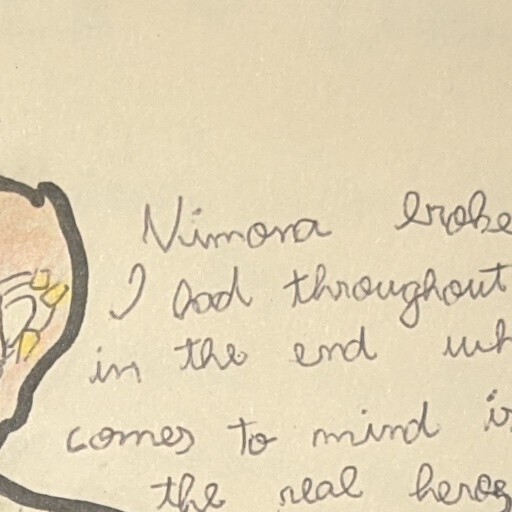 Nimona broke
I had throughout
in the end wh
comes to mind is
the real heros